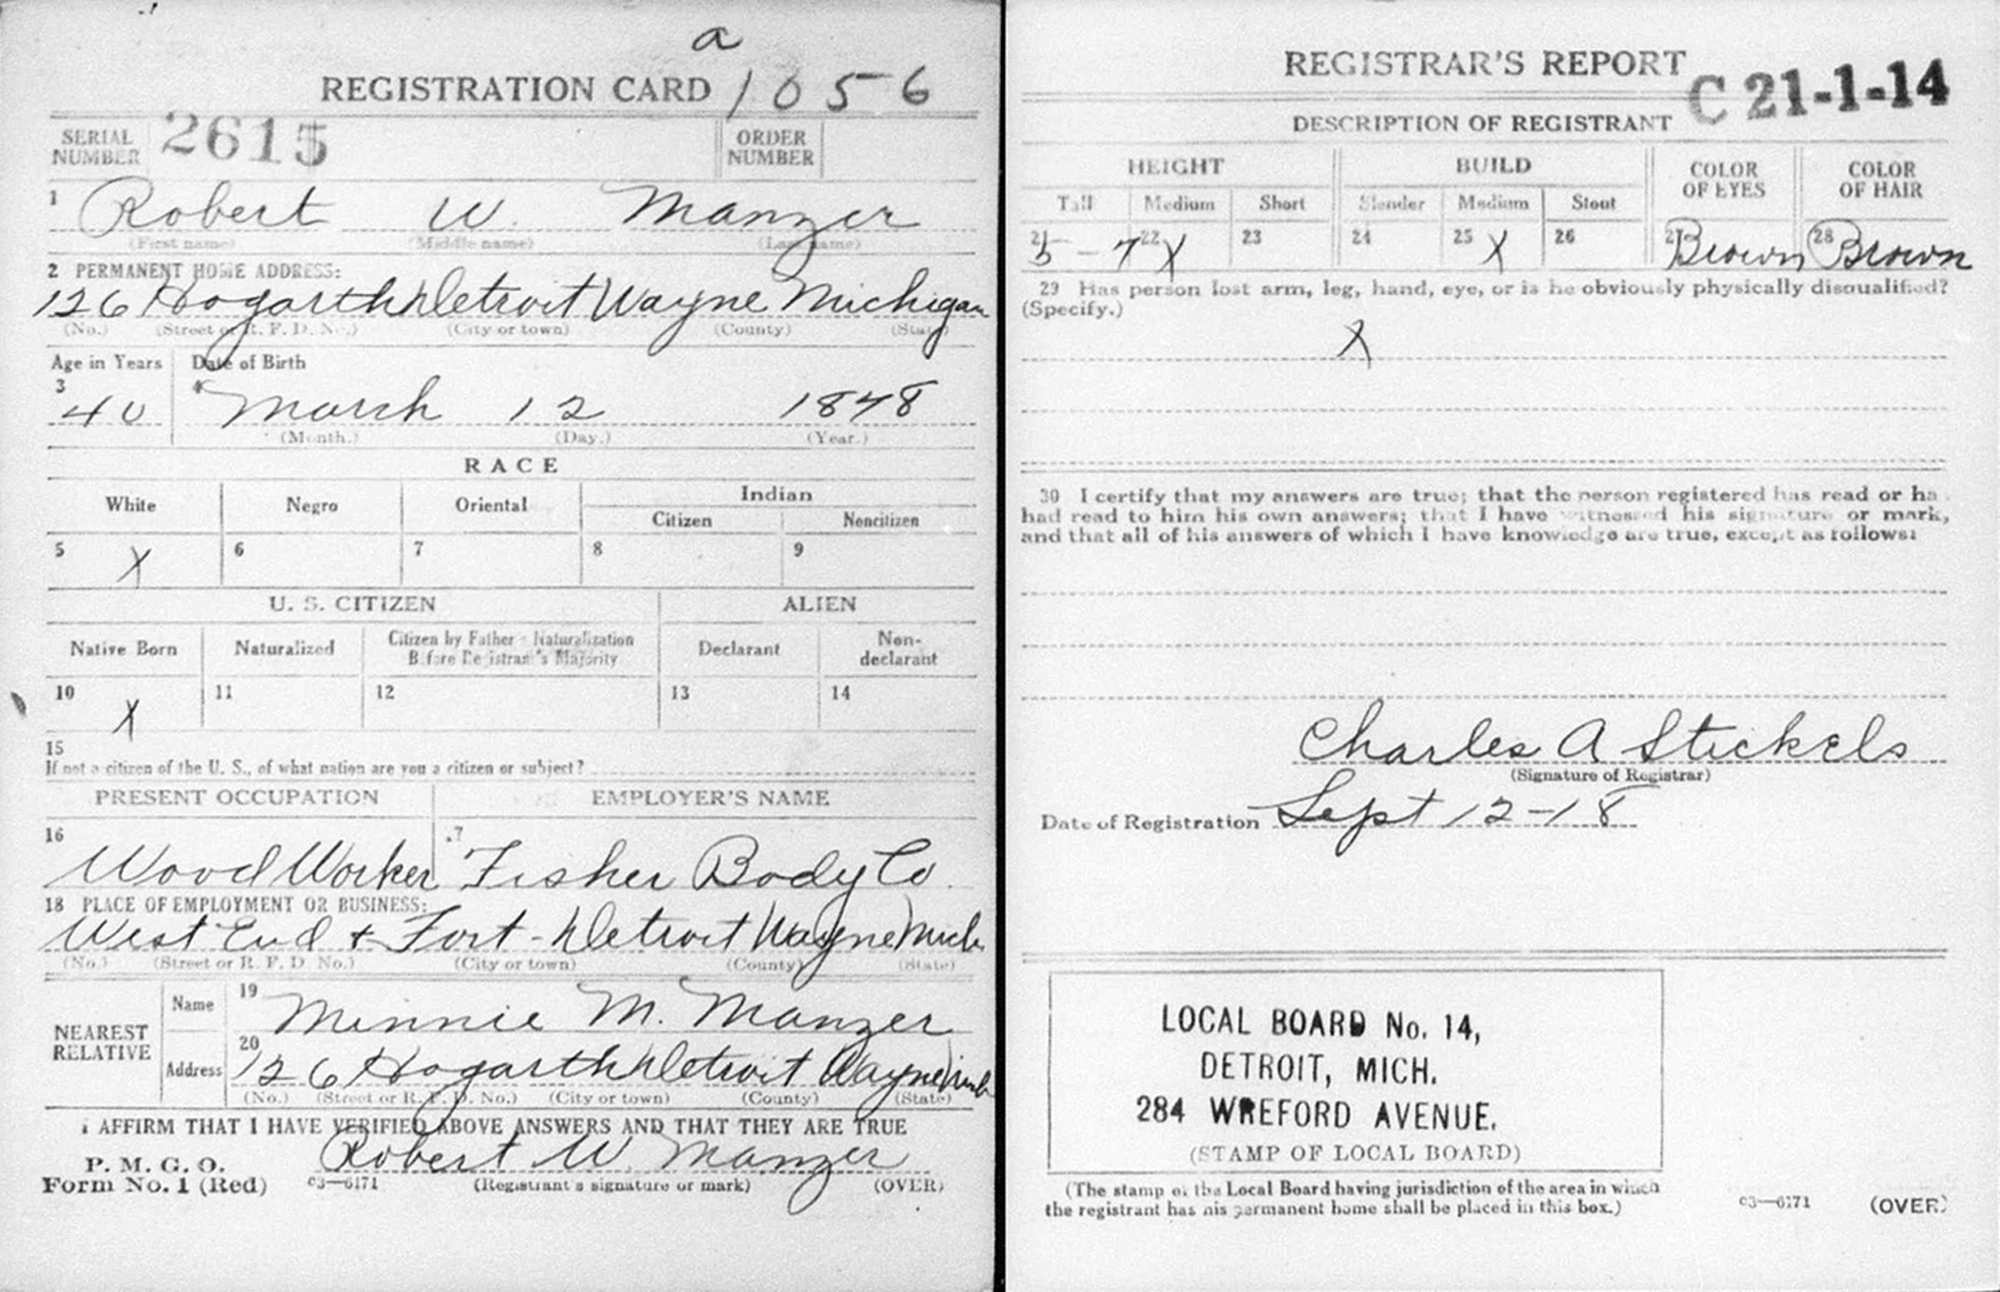 a
REGISTRATION CARD 1056
SERIAL NUMBER 2615 ORDER NUMBER
1 Robert W. Manzer
(First name) (Middle name) (Last name)
2 PERMANENT HOME ADDRESS:
126 Hogarth Detroit Wayne Michigan
(No.) (Street or R. F. D. No.) (City or town) (County) (State)
Age in Years Date of Birth
3 40 4 March 12 1878
(Month.) (Day.) (Year.)
RACE
White Negro Oriental Indian
Citizen Noncitizen
5 X 6 7 8 9
U. S. CITIZEN ALIEN
Native Born Naturalized Citizen by Father's Naturalization Before Registrant's Majority Declarant Non-declarant
10 X 11 12 13 14
15
If not a citizen of the U. S., of what nation are you a citizen or subject?
PRESENT OCCUPATION EMPLOYER'S NAME
16 Wood Worker 17 Fisher Body Co.
18 PLACE OF EMPLOYMENT OR BUSINESS:
West End + Fort - Detroit Wayne Mich
(No.) (Street or R. F. D. No.) (City or town) (County) (State)
NEAREST RELATIVE
Name 19 Minnie M. Manzer
Address 20 126 Hogarth Detroit Wayne Mich
(No.) (Street or R. F. D. No.) (City or town) (County) (State)
I AFFIRM THAT I HAVE VERIFIED ABOVE ANSWERS AND THAT THEY ARE TRUE
P. M. G. O.
Form No. 1 (Red) c3—6171 Robert W. Manzer
(Registrant's signature or mark) (OVER)
REGISTRAR'S REPORT
C 21-1-14
DESCRIPTION OF REGISTRANT
HEIGHT BUILD COLOR OF EYES COLOR OF HAIR
Tall Medium Short Slender Medium Stout
21 5-7 22 X 23 24 25 X 26 27 Brown 28 Brown
29 Has person lost arm, leg, hand, eye, or is he obviously physically disqualified?
(Specify.)
X
30 I certify that my answers are true; that the person registered has read or ha
had read to him his own answers; that I have witnessed his signature or mark,
and that all of his answers of which I have knowledge are true, except as follows:
Charles A Stickels
(Signature of Registrar)
Date of Registration Sept 12-18
LOCAL BOARD No. 14,
DETROIT, MICH.
284 WREFORD AVENUE.
(STAMP OF LOCAL BOARD)
(The stamp of the Local Board having jurisdiction of the area in which
the registrant has his permanent home shall be placed in this box.)
c3—6171 (OVER)